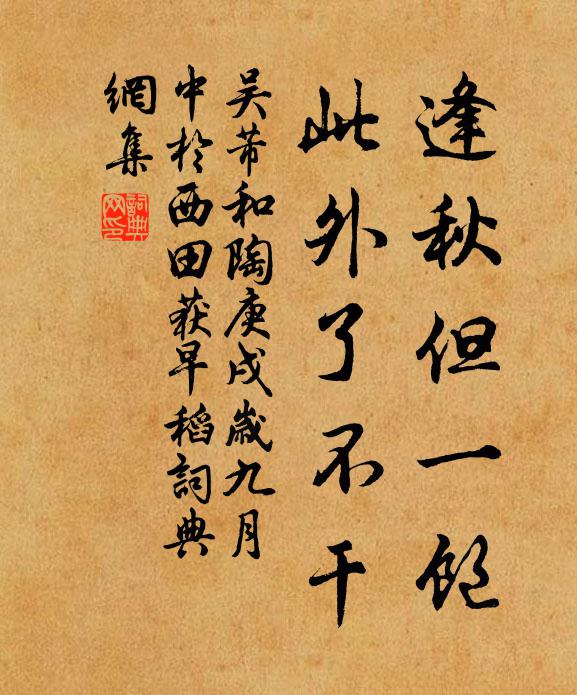 逢秋但一飽
此外了不干
吴芾和陶庚戌歲九月
中於西田获早稻詞典
網集
詞典网印